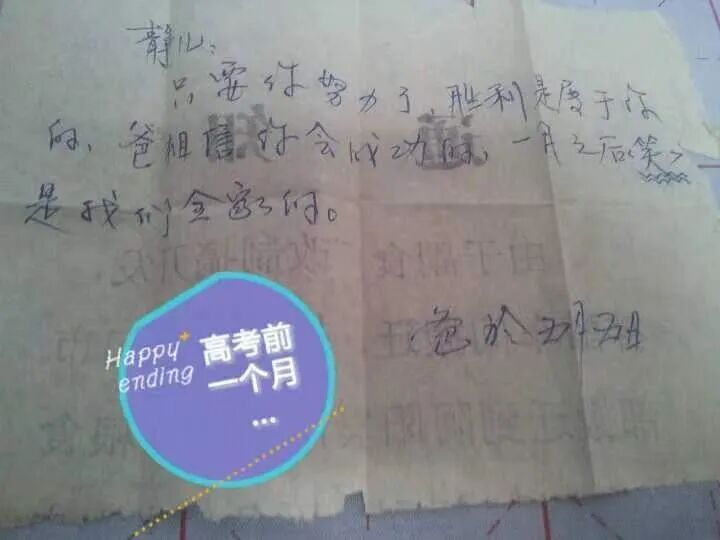 静儿：
只要你努力了，胜利是属于你
的，爸相信你会成功的，一月之后笑
是我们全家的。
爸於五月五日
Happy
ending
高考前
一个月
...
通知
由于副食 改制搞开发，